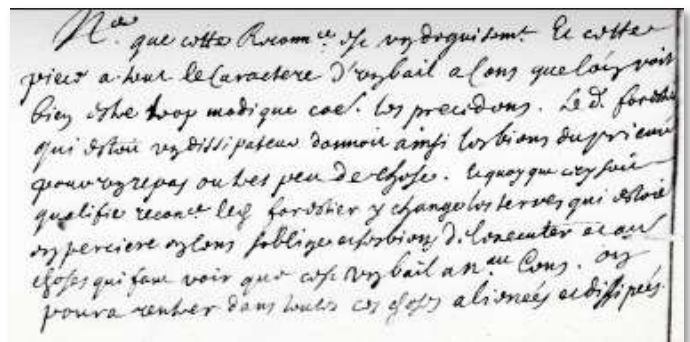 N.ce que cette Reconn.ce est un deguisem.t Et cette
piece a tout le Caractere d'un bail a Cens que lon voit
bien estre trop modique coe. les precedens. Le d. forestier
qui estoit un dissipateur donnoit ainsi les biens du prieuré
pour un repas ou tres peu de chose. Et quoy que cecy soit
qualifie recon.ce led forestier y change les terres qui estoit
en perciere en Cens soblige et les biens de lexecuter et au
choses qui font voir que cest un bail a n.au Cens. on
poura rentrer dans toutes ces choses alienées et dissipeés.